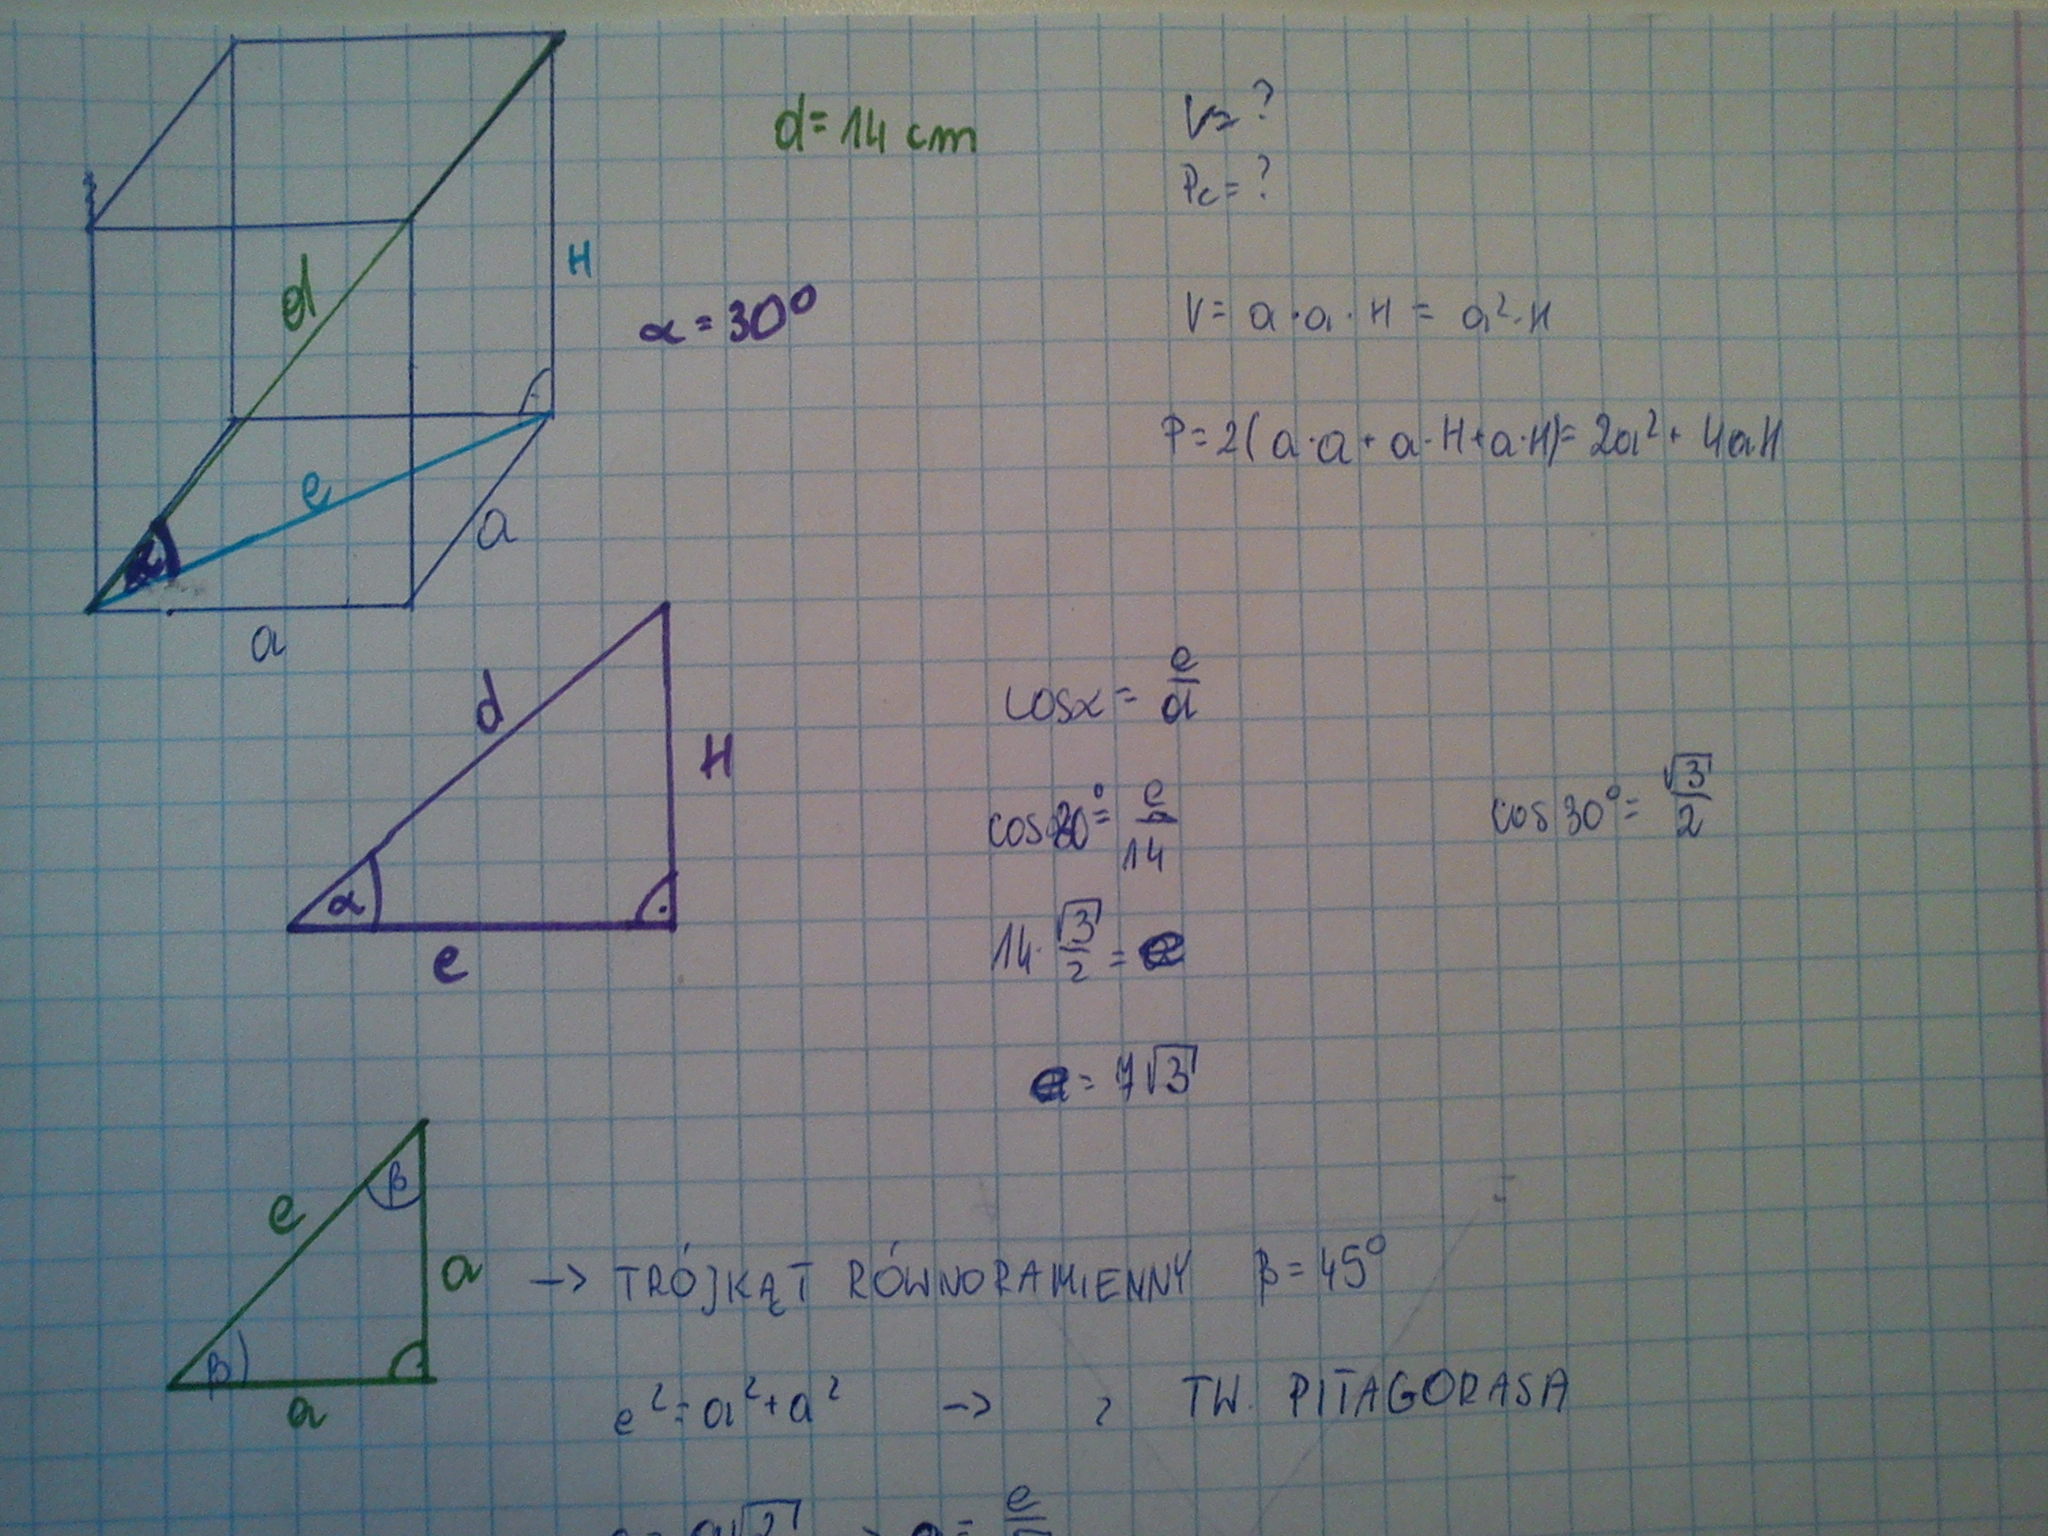 d=14 cm
V=?
Pc=?
d
H
α=30°
V= a·a·H = a²·H
P=2(a·a+a·H+a·H)=2a²+4aH
e
a
α
a
d
H
α
e
cosα= e/d
cos30°= e/14
cos30°= √3/2
14·√3/2=e
e=7√3
e
β
a
β
a
-> TRÓJKĄT RÓWNORAMIENNY β=45°
e²=a²+a² -> z TW. PITAGORASA